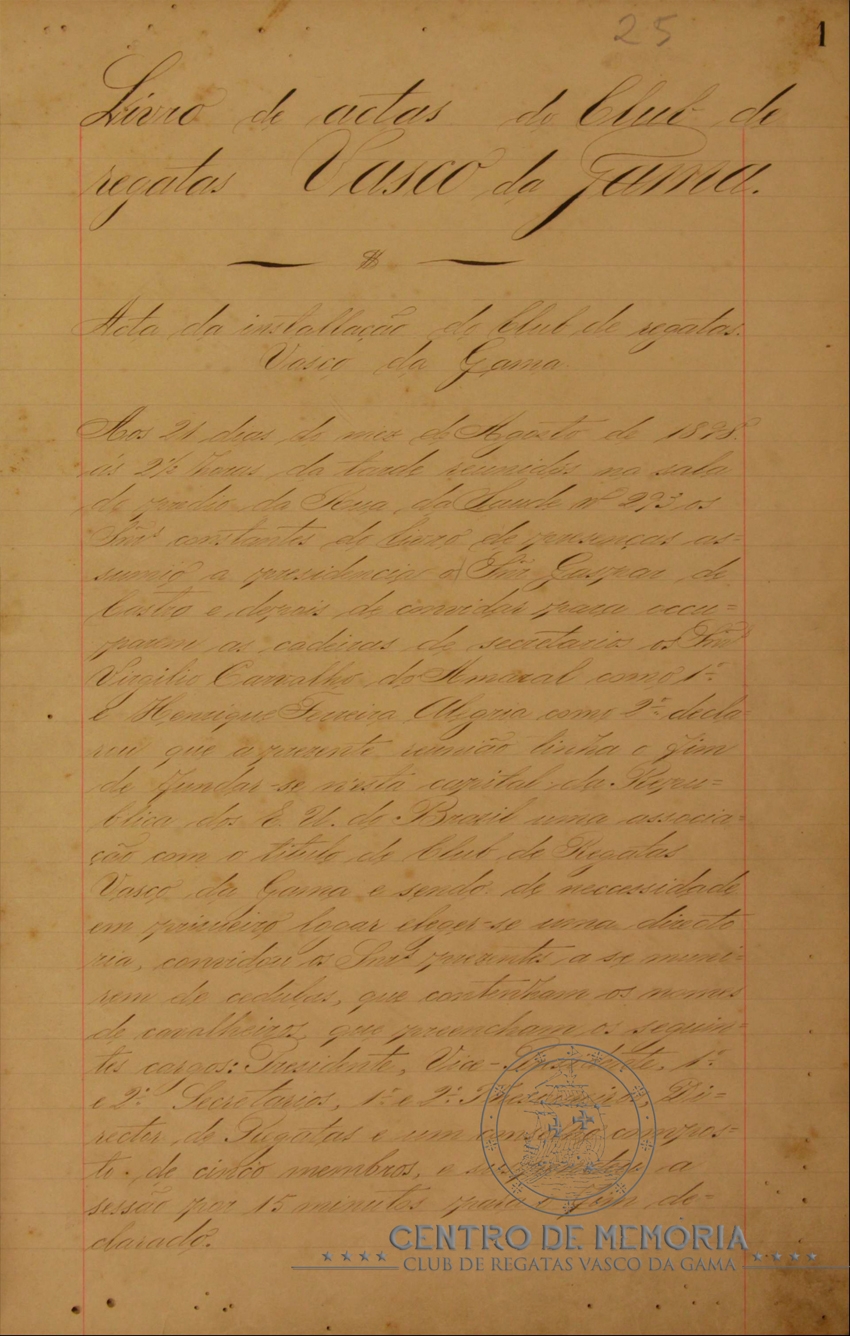 25
1
Livro de actas do Club de
regatas Vasco da Gama.
Acta da installação do Club de regatas
Vasco da Gama
Aos 21 dias do mez de Agosto de 1898
ás 2½ horas da tarde reunidos na sala
do predio da Rua da Saude nº 293 os
Snrs constantes do livro de presenças as=
sumio a presidencia o Snr Gaspar de
Castro e depois de convidar para occu=
parem as cadeiras de secretarios os Snrs
Virgilio Carvalho do Amaral como 1º
e Henrique Ferreira Alegria como 2º decla=
rou que a presente reunião tinha o fim
de fundar-se n'esta capital da Repu=
blica dos E. U. do Brasil uma associa=
ção com o titulo de Club de Regatas
Vasco da Gama e sendo de necessidade
em primeiro logar eleger-se uma directo
ria, convidou os Snrs presentes a se muni=
rem de cedulas, que contenham os nomes
de cavalheiros que preencham os seguin=
tes cargos: Presidente, Vice-Presidente, 1º
e 2º Secretarios, 1º e 2º Thesoureiros, Di=
rector de Regatas e um conselho compos=
to de cinco membros, e suspendeu a
sessão por 15 minutos para o fim de=
clarado.
CENTRO DE MEMÓRIA
CLUB DE REGATAS VASCO DA GAMA